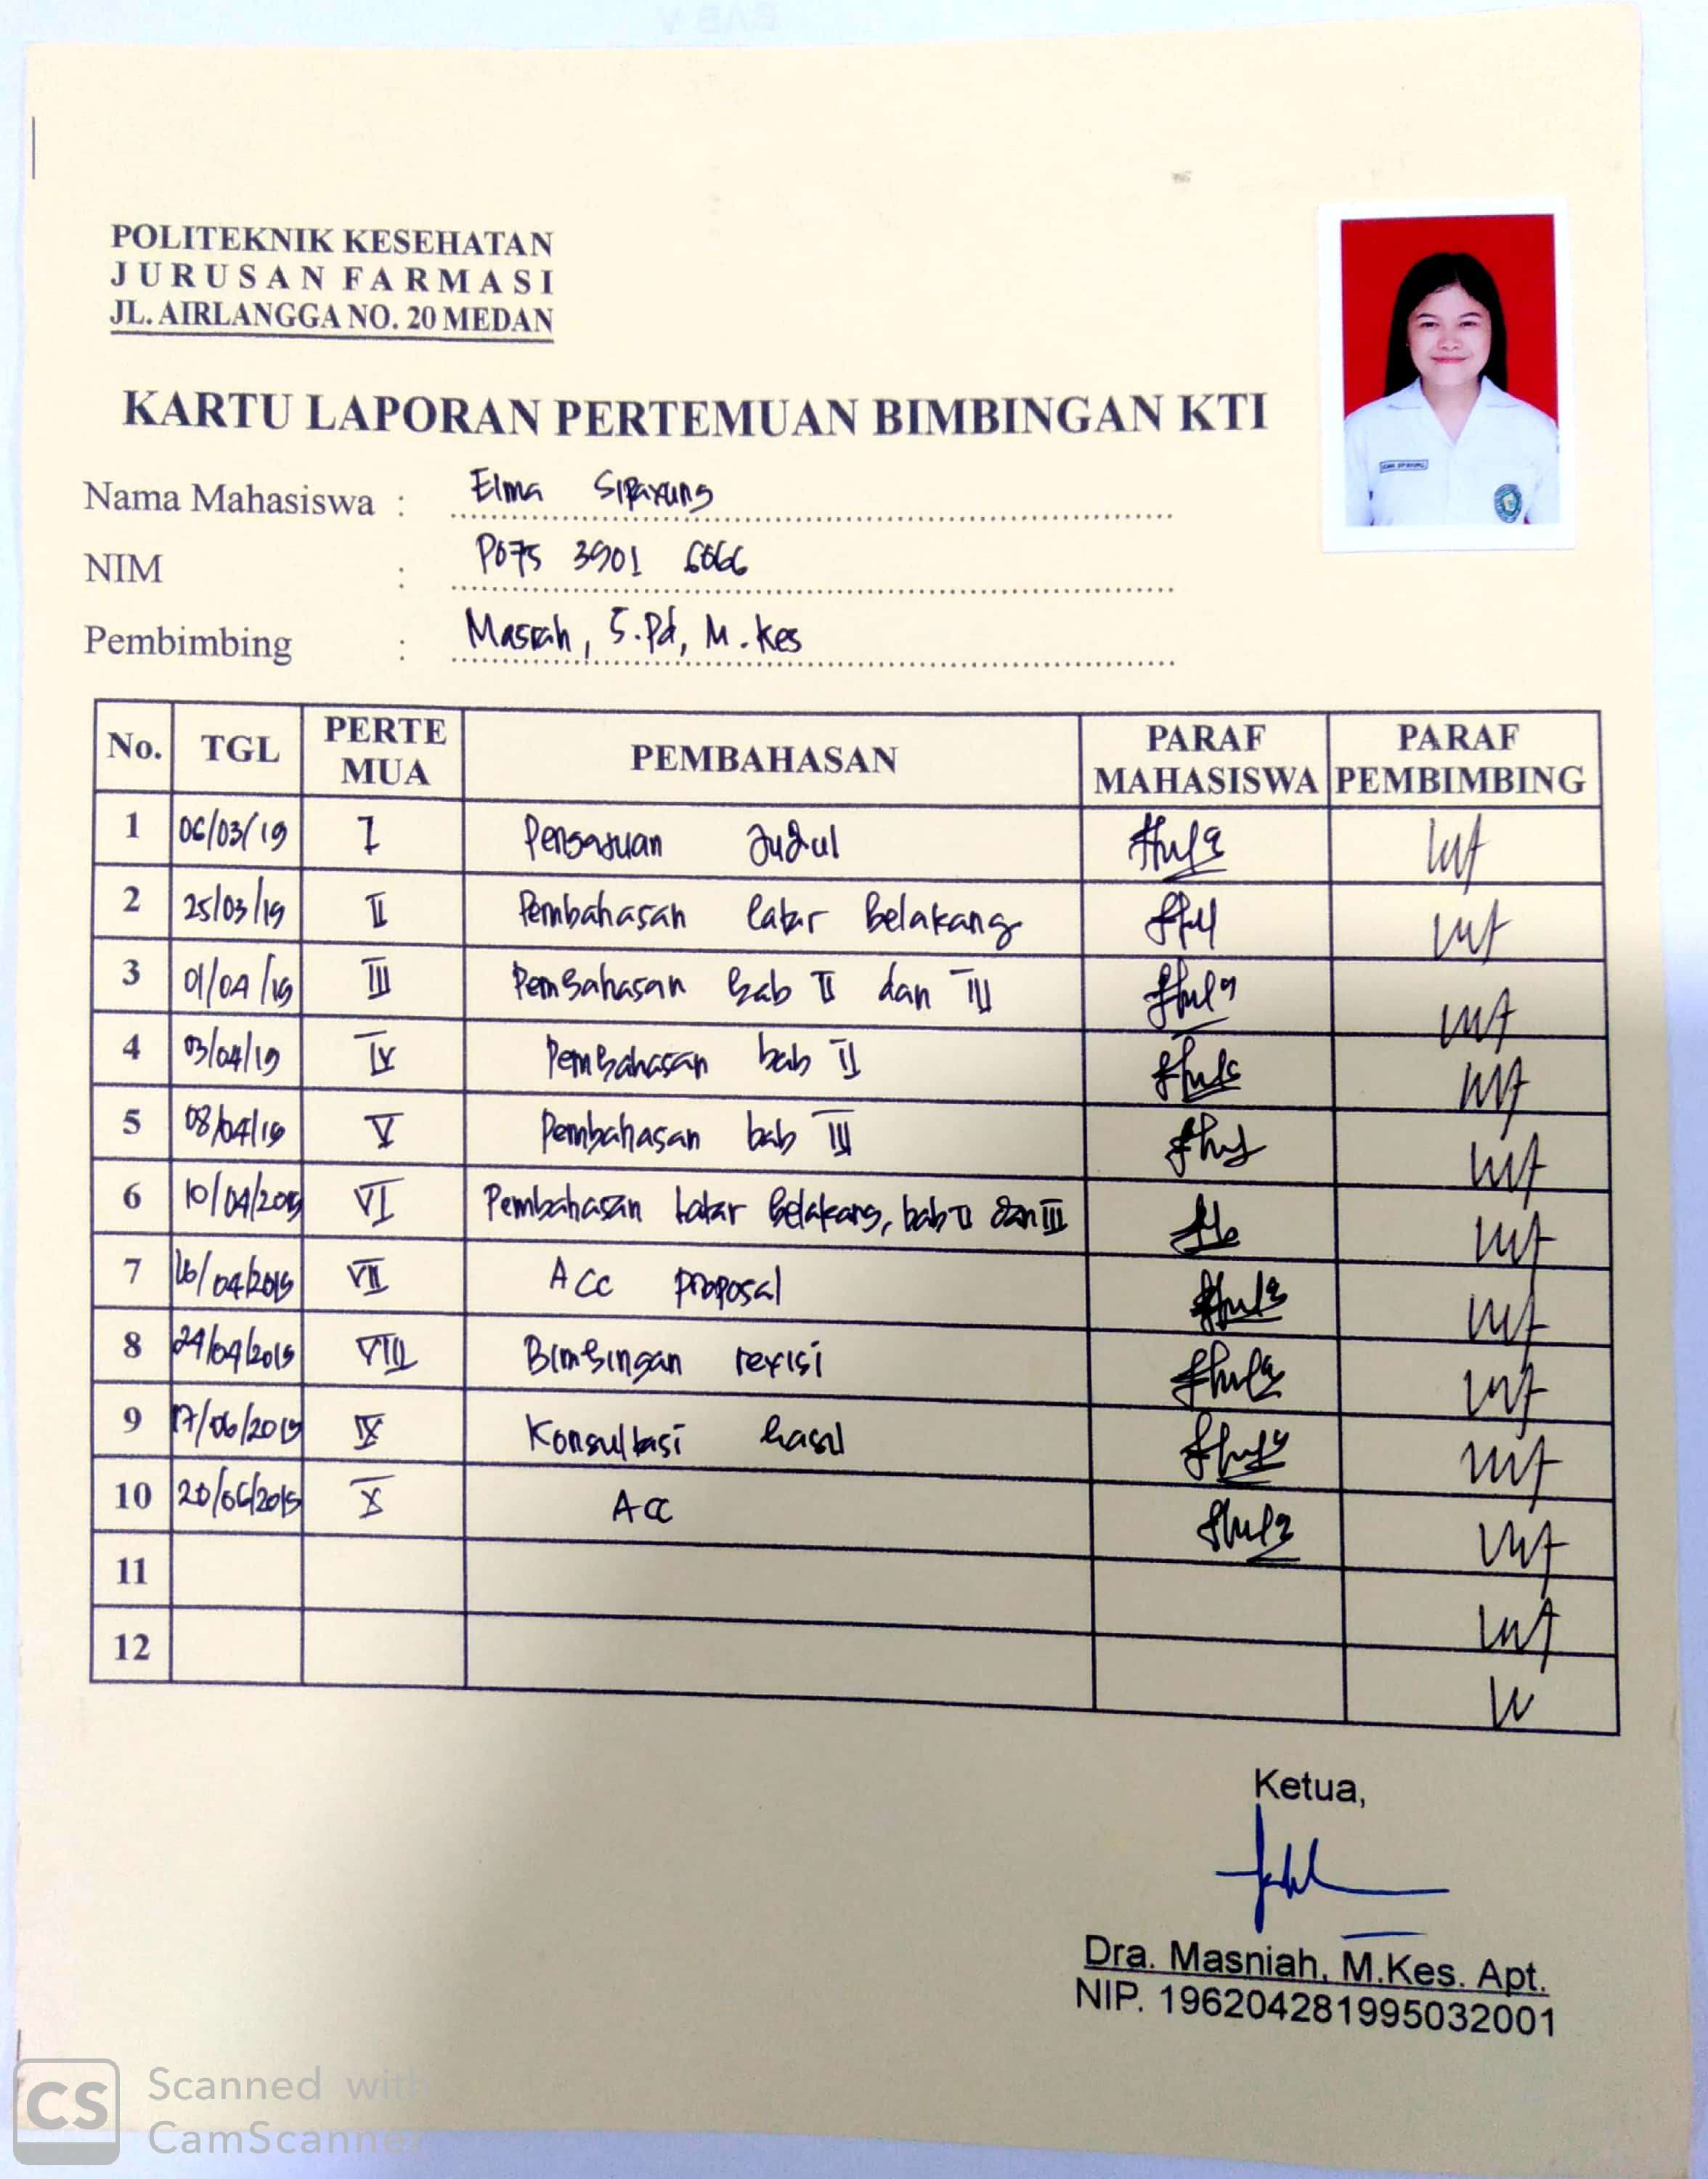 POLITEKNIK KESEHATAN
JURUSAN FARMASI
JL. AIRLANGGA NO. 20 MEDAN
KARTU LAPORAN PERTEMUAN BIMBINGAN KTI
Nama Mahasiswa : Elma Sipayung
NIM : P075 3901 6066
Pembimbing : Masrah, S.Pd, M.Kes
No. TGL PERTE MUA PEMBAHASAN PARAF MAHASISWA PARAF PEMBIMBING
1 06/03/19 I Pengajuan Judul
2 25/03/19 II Pembahasan latar Belakang
3 01/04/19 III Pembahasan bab II dan III
4 03/04/19 IV Pembahasan bab II
5 08/04/19 V Pembahasan bab III
6 10/04/2019 VI Pembahasan Latar Belakang, bab II dan III
7 16/04/2019 VII Acc proposal
8 24/04/2019 VIII Bimbingan revisi
9 17/06/2019 IX Konsultasi hasil
10 20/06/2019 X Acc
11
12
Ketua,
Dra. Masniah, M.Kes. Apt.
NIP. 196204281995032001
CS Scanned with
CamScanner